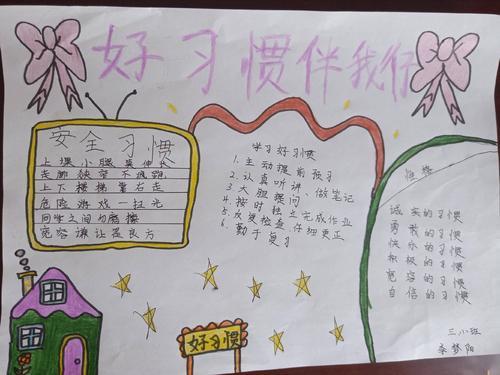 好习惯伴我行
安全习惯
上课小腿莫伸长
走廊狭窄不疯跑
上下楼梯靠右走
危险游戏一扫光
同学之间勿磨擦
宽容谦让是良方
学习好习惯
1. 主动提前预习
2. 认真听讲、做笔记
3. 大胆提问
4. 按时独立完成作业
5. 反复检查,仔细更正
6. 勤于复习
性格
诚实的习惯
勇敢的习惯
快乐的习惯
积极的习惯
宽容的习惯
自信的习惯
好习惯
三小班
梦阳